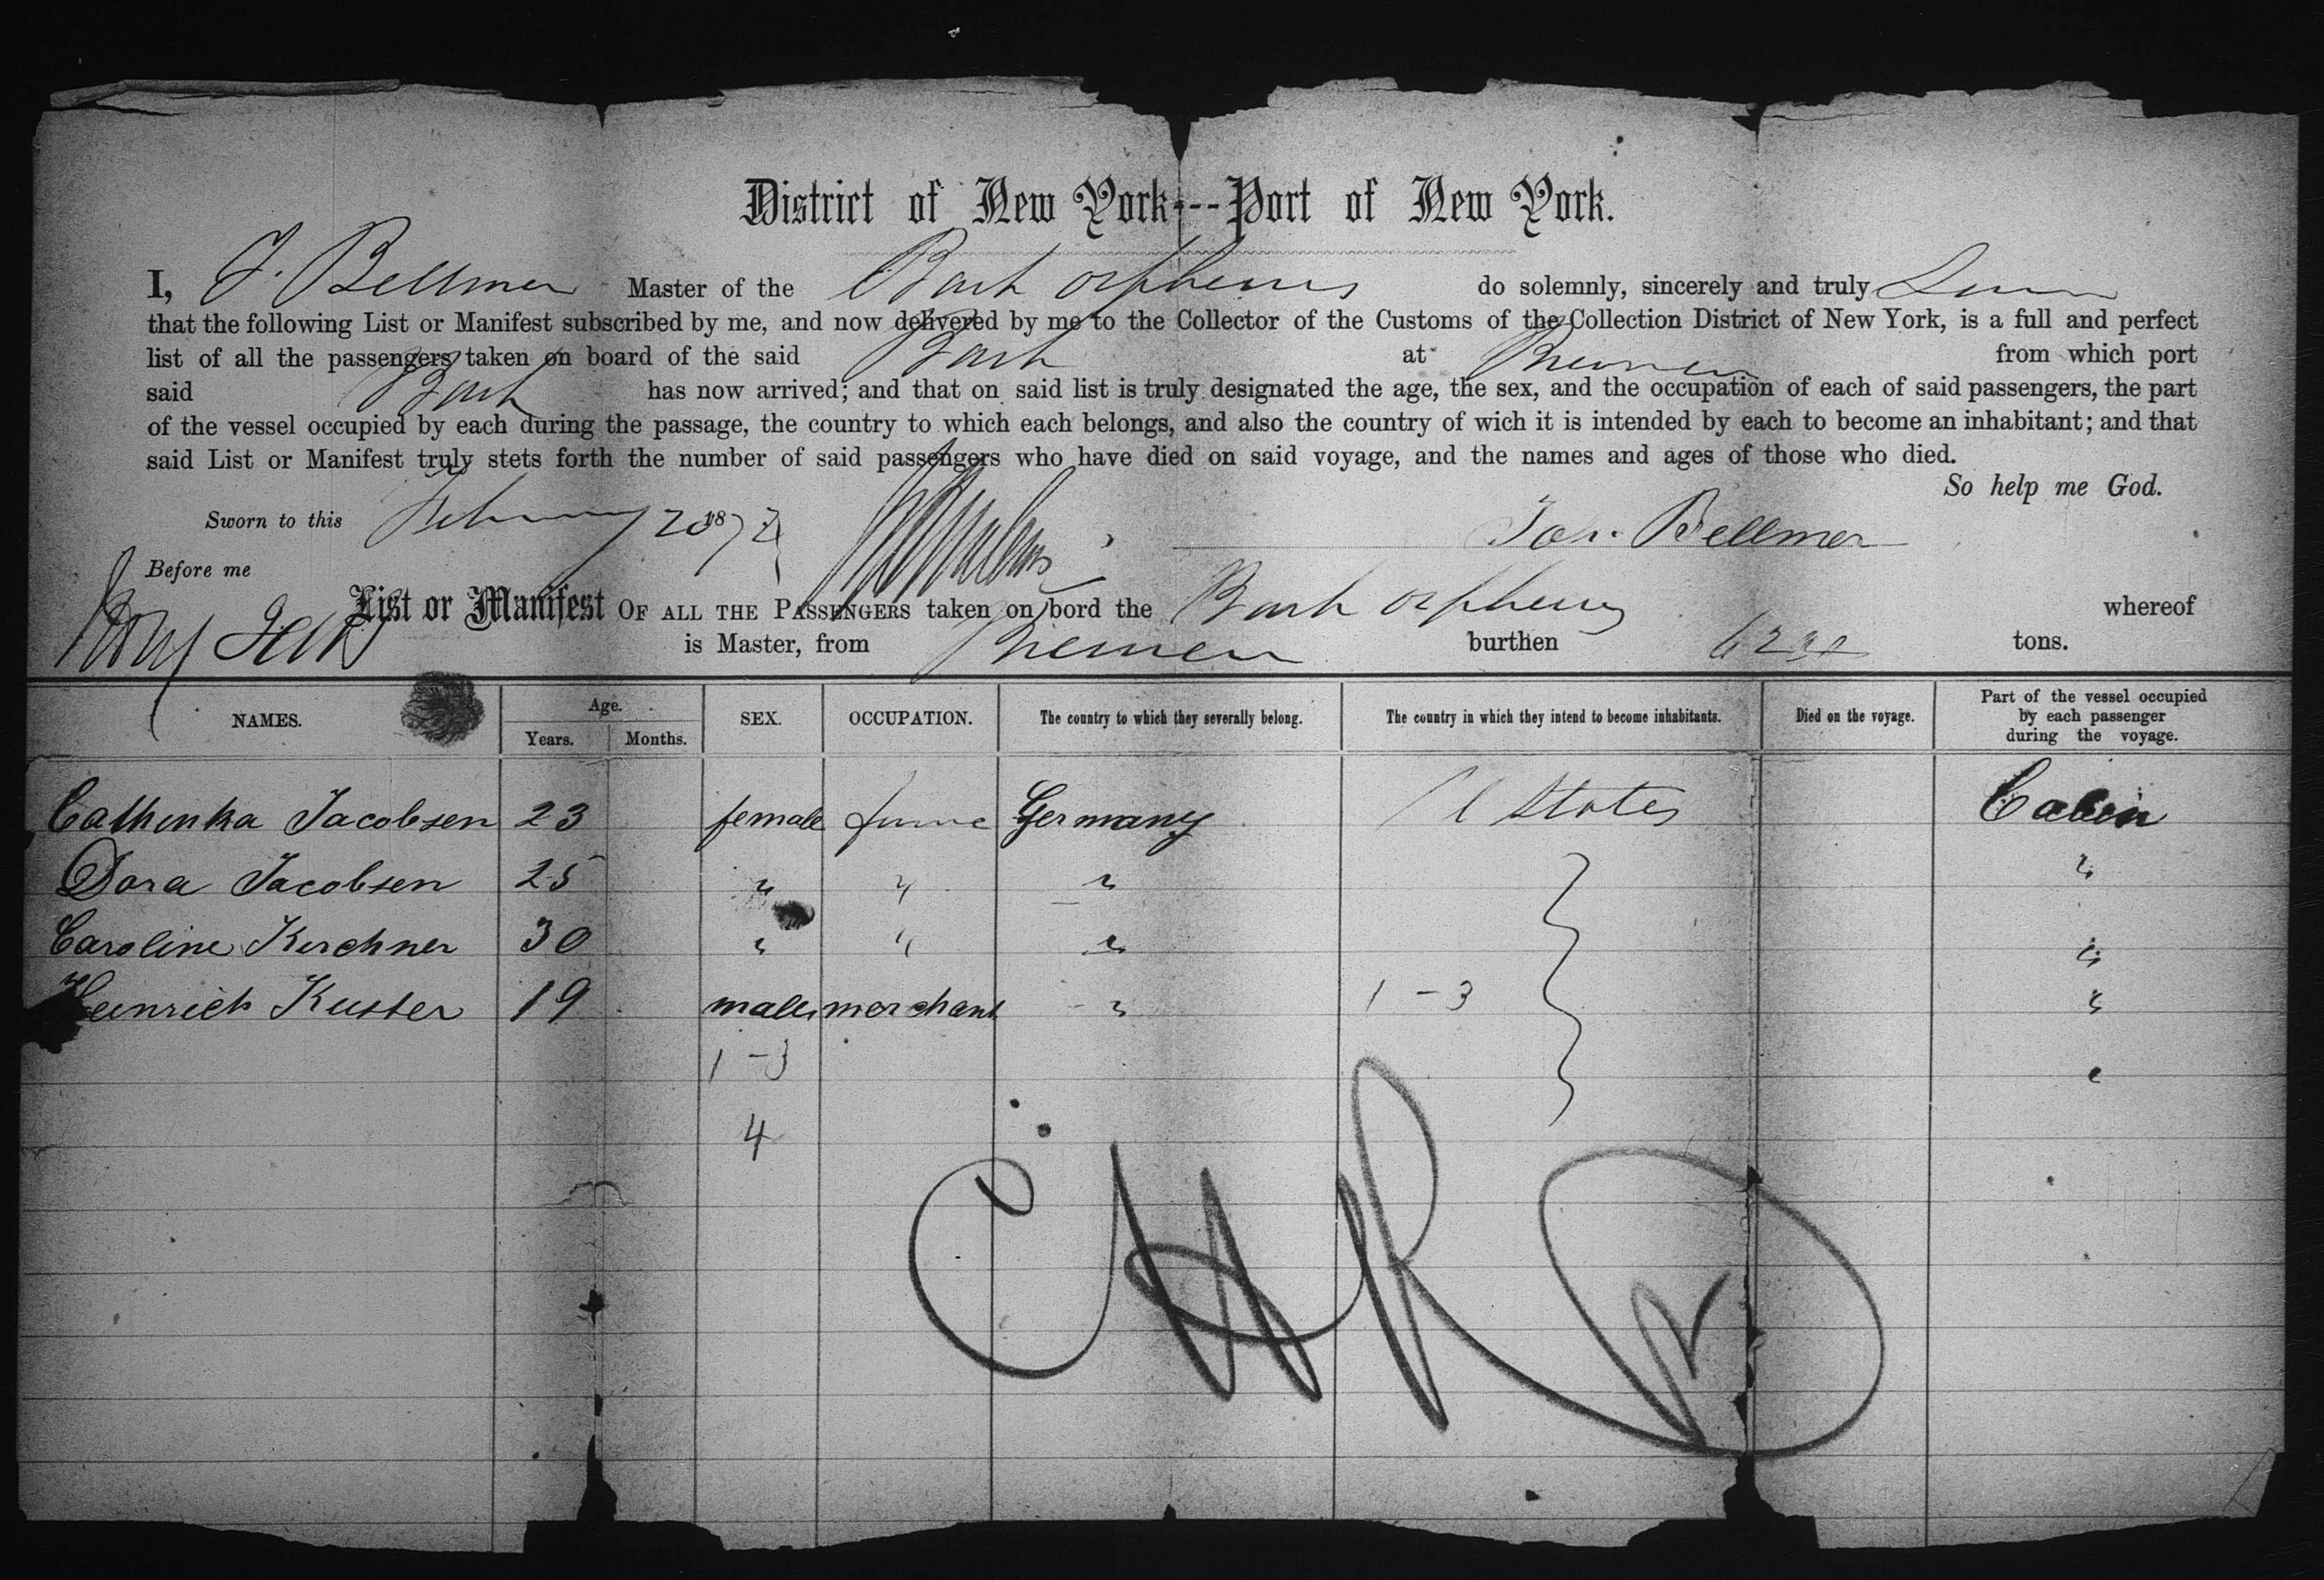 District of New York---Port of New York.
I, J. Bellmer Master of the Bark Orpheus do solemnly, sincerely and truly
that the following List or Manifest subscribed by me, and now delivered by me to the Collector of the Customs of the Collection District of New York, is a full and perfect
list of all the passengers taken on board of the said Bark at Bremen from which port
said Bark has now arrived; and that on said list is truly designated the age, the sex, and the occupation of each of said passengers, the part
of the vessel occupied by each during the passage, the country to which each belongs, and also the country of wich it is intended by each to become an inhabitant; and that
said List or Manifest truly stets forth the number of said passengers who have died on said voyage, and the names and ages of those who died.
So help me God.
Sworn to this February 20 187 Bellmer
Before me
List or Manifest OF ALL THE PASSENGERS taken on bord the Bark Orpheus whereof
is Master, from Bremen burthen tons.
NAMES. Age. Years. Months. SEX. OCCUPATION. The country to which they severally belong. The country in which they intend to become inhabitants. Died on the voyage. Part of the vessel occupied by each passenger during the voyage.
Cathinka Jacobsen 23 female Germany U States Cabin
Dora Jacobsen 25 " " " "
Caroline Kerchner 30 " " " "
Heinrich Kuster 19 male merchant " 1-3 "
1-3
4